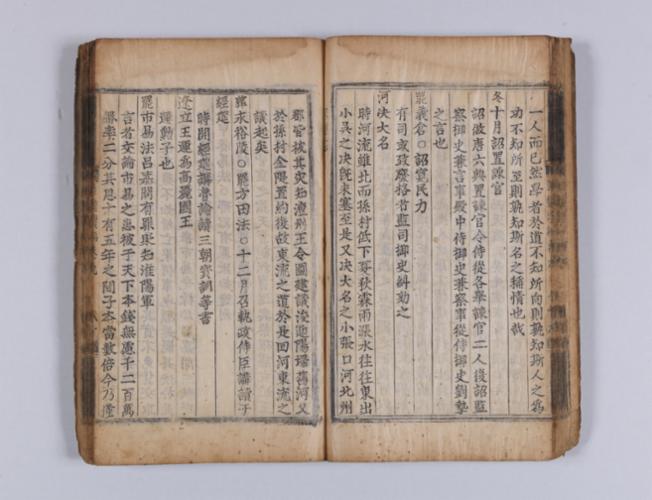 一人而已然學者於道不知所向則孰知斯人之爲
功不知所至則孰知斯名之稱情也哉
冬十月詔置諫官
詔倣唐六典置諫官令侍從各舉諫官二人復詔監
察御史兼言事殿中侍御史兼察事從侍御史劉摯
之言也
罷義倉○詔寬民力
有司或致廢格者監司御史糾劾之
河決大名
時河流雖北而孫村低下夏秋霖雨漲水往往東出
小吳之決旣未塞至是又決大名之小張口河北州
郡皆被其灾知澶州王令圖建議浚迎陽埽舊河又
於孫村金隄置約復故東流之道於是回河東流之
議起矣
葬永裕陵○罷方田法○十二月召執政侍臣講讀于
經筵
時開經筵講魯論讀三朝寶訓等書
遼立王運爲高麗國王
運勳子也
罷市易法呂嘉問有罪貶知淮陽軍
言者交論市易之患被于天下本錢無慮千二百萬
緡率二分其息十有五年之間子本當數倍今乃僅